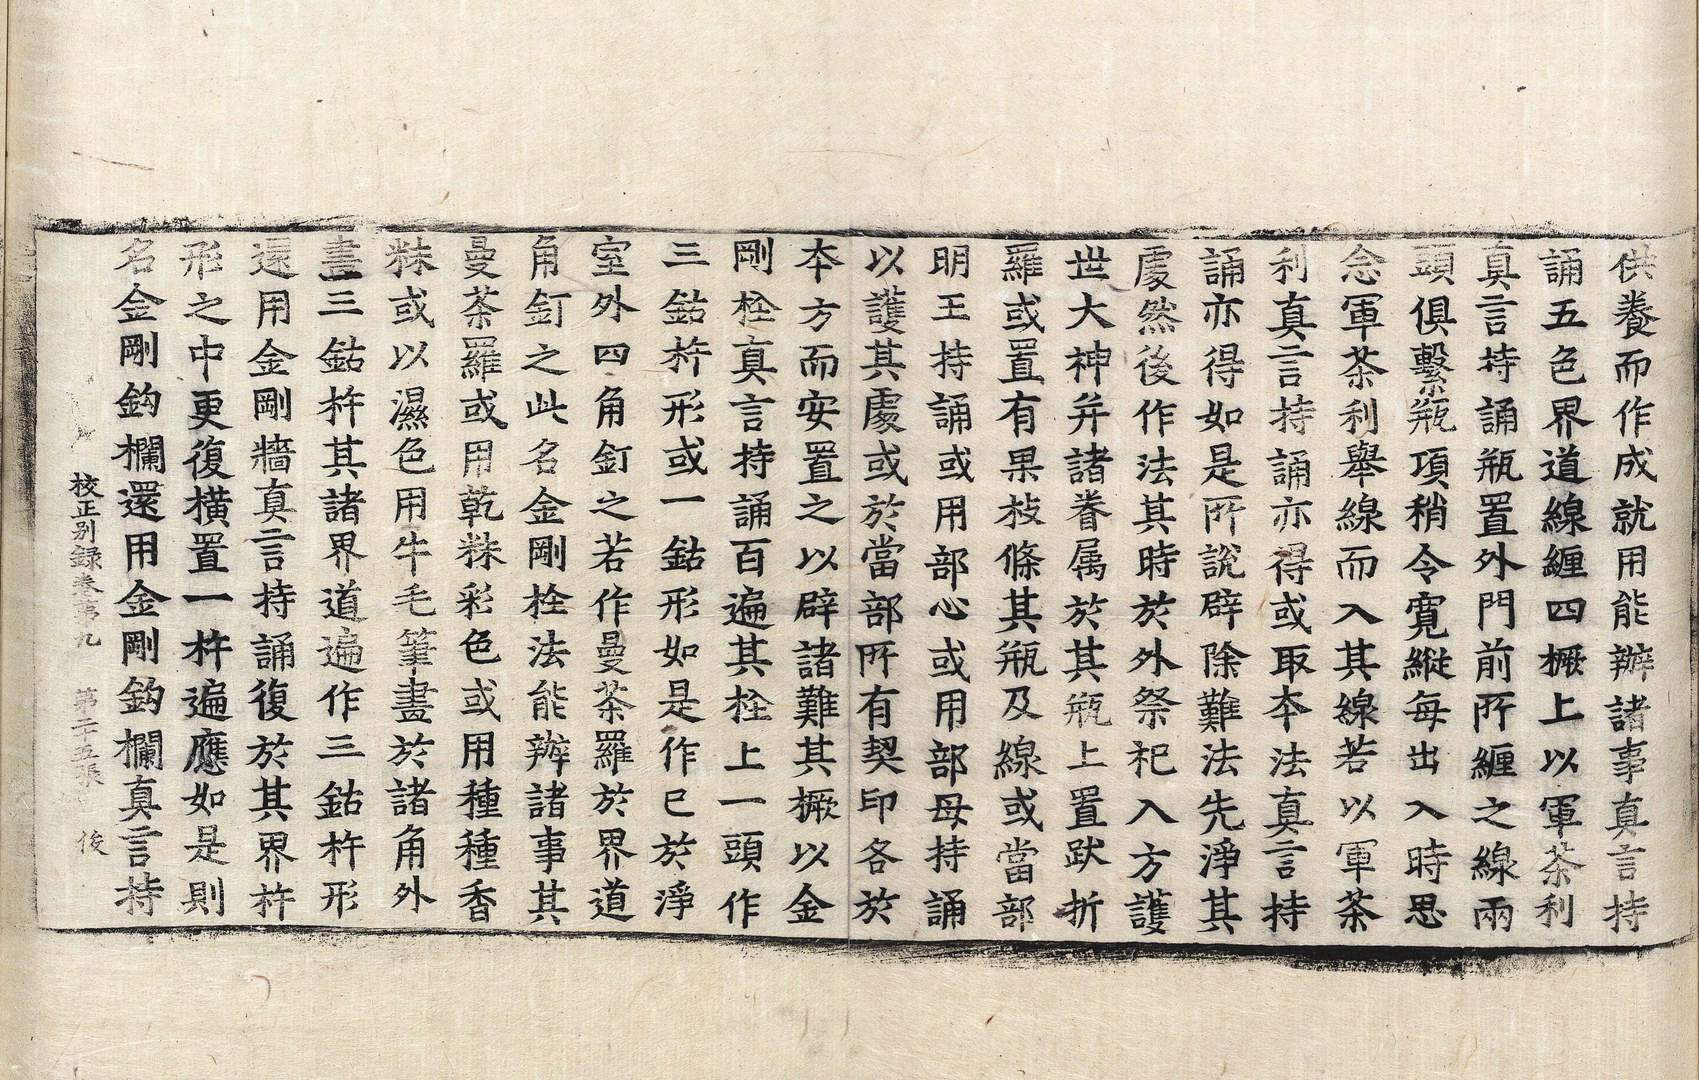 供養而作成就用能辦諸事真言持
誦五色界道線纏四橛上以軍茶利
真言持誦瓶置外門前所纏之線兩
頭俱繫瓶項稍令寬縱每出入時思
念軍茶利舉線而入其線若以軍茶
利真言持誦亦得或取本法真言持
誦亦得如是所說辟除難法先淨其
處然後作法其時於外祭祀入方護
世大神并諸眷属於其瓶上置䟦折
羅或置有果枝條其瓶及線或當部
明王持誦或用部心或用部母持誦
以護其處或於當部所有契印各於
本方而安置之以辟諸難其橛以金
剛栓真言持誦百遍其栓上一頭作
三鈷杵形或一鈷形如是作已於淨
室外四角釘之若作曼茶羅於界道
角釘之此名金剛栓法能辦諸事其
曼茶羅或用乾粖彩色或用種種香
粖或以濕色用牛毛筆畫於諸角外
畫三鈷杵其諸界道遍作三鈷杵形
還用金剛牆真言持誦復於其界杵
形之中更復橫置一杵遍應如是則
名金剛鈎欄還用金剛鈎欄真言持
校正别録卷第九 第二十五張 俊